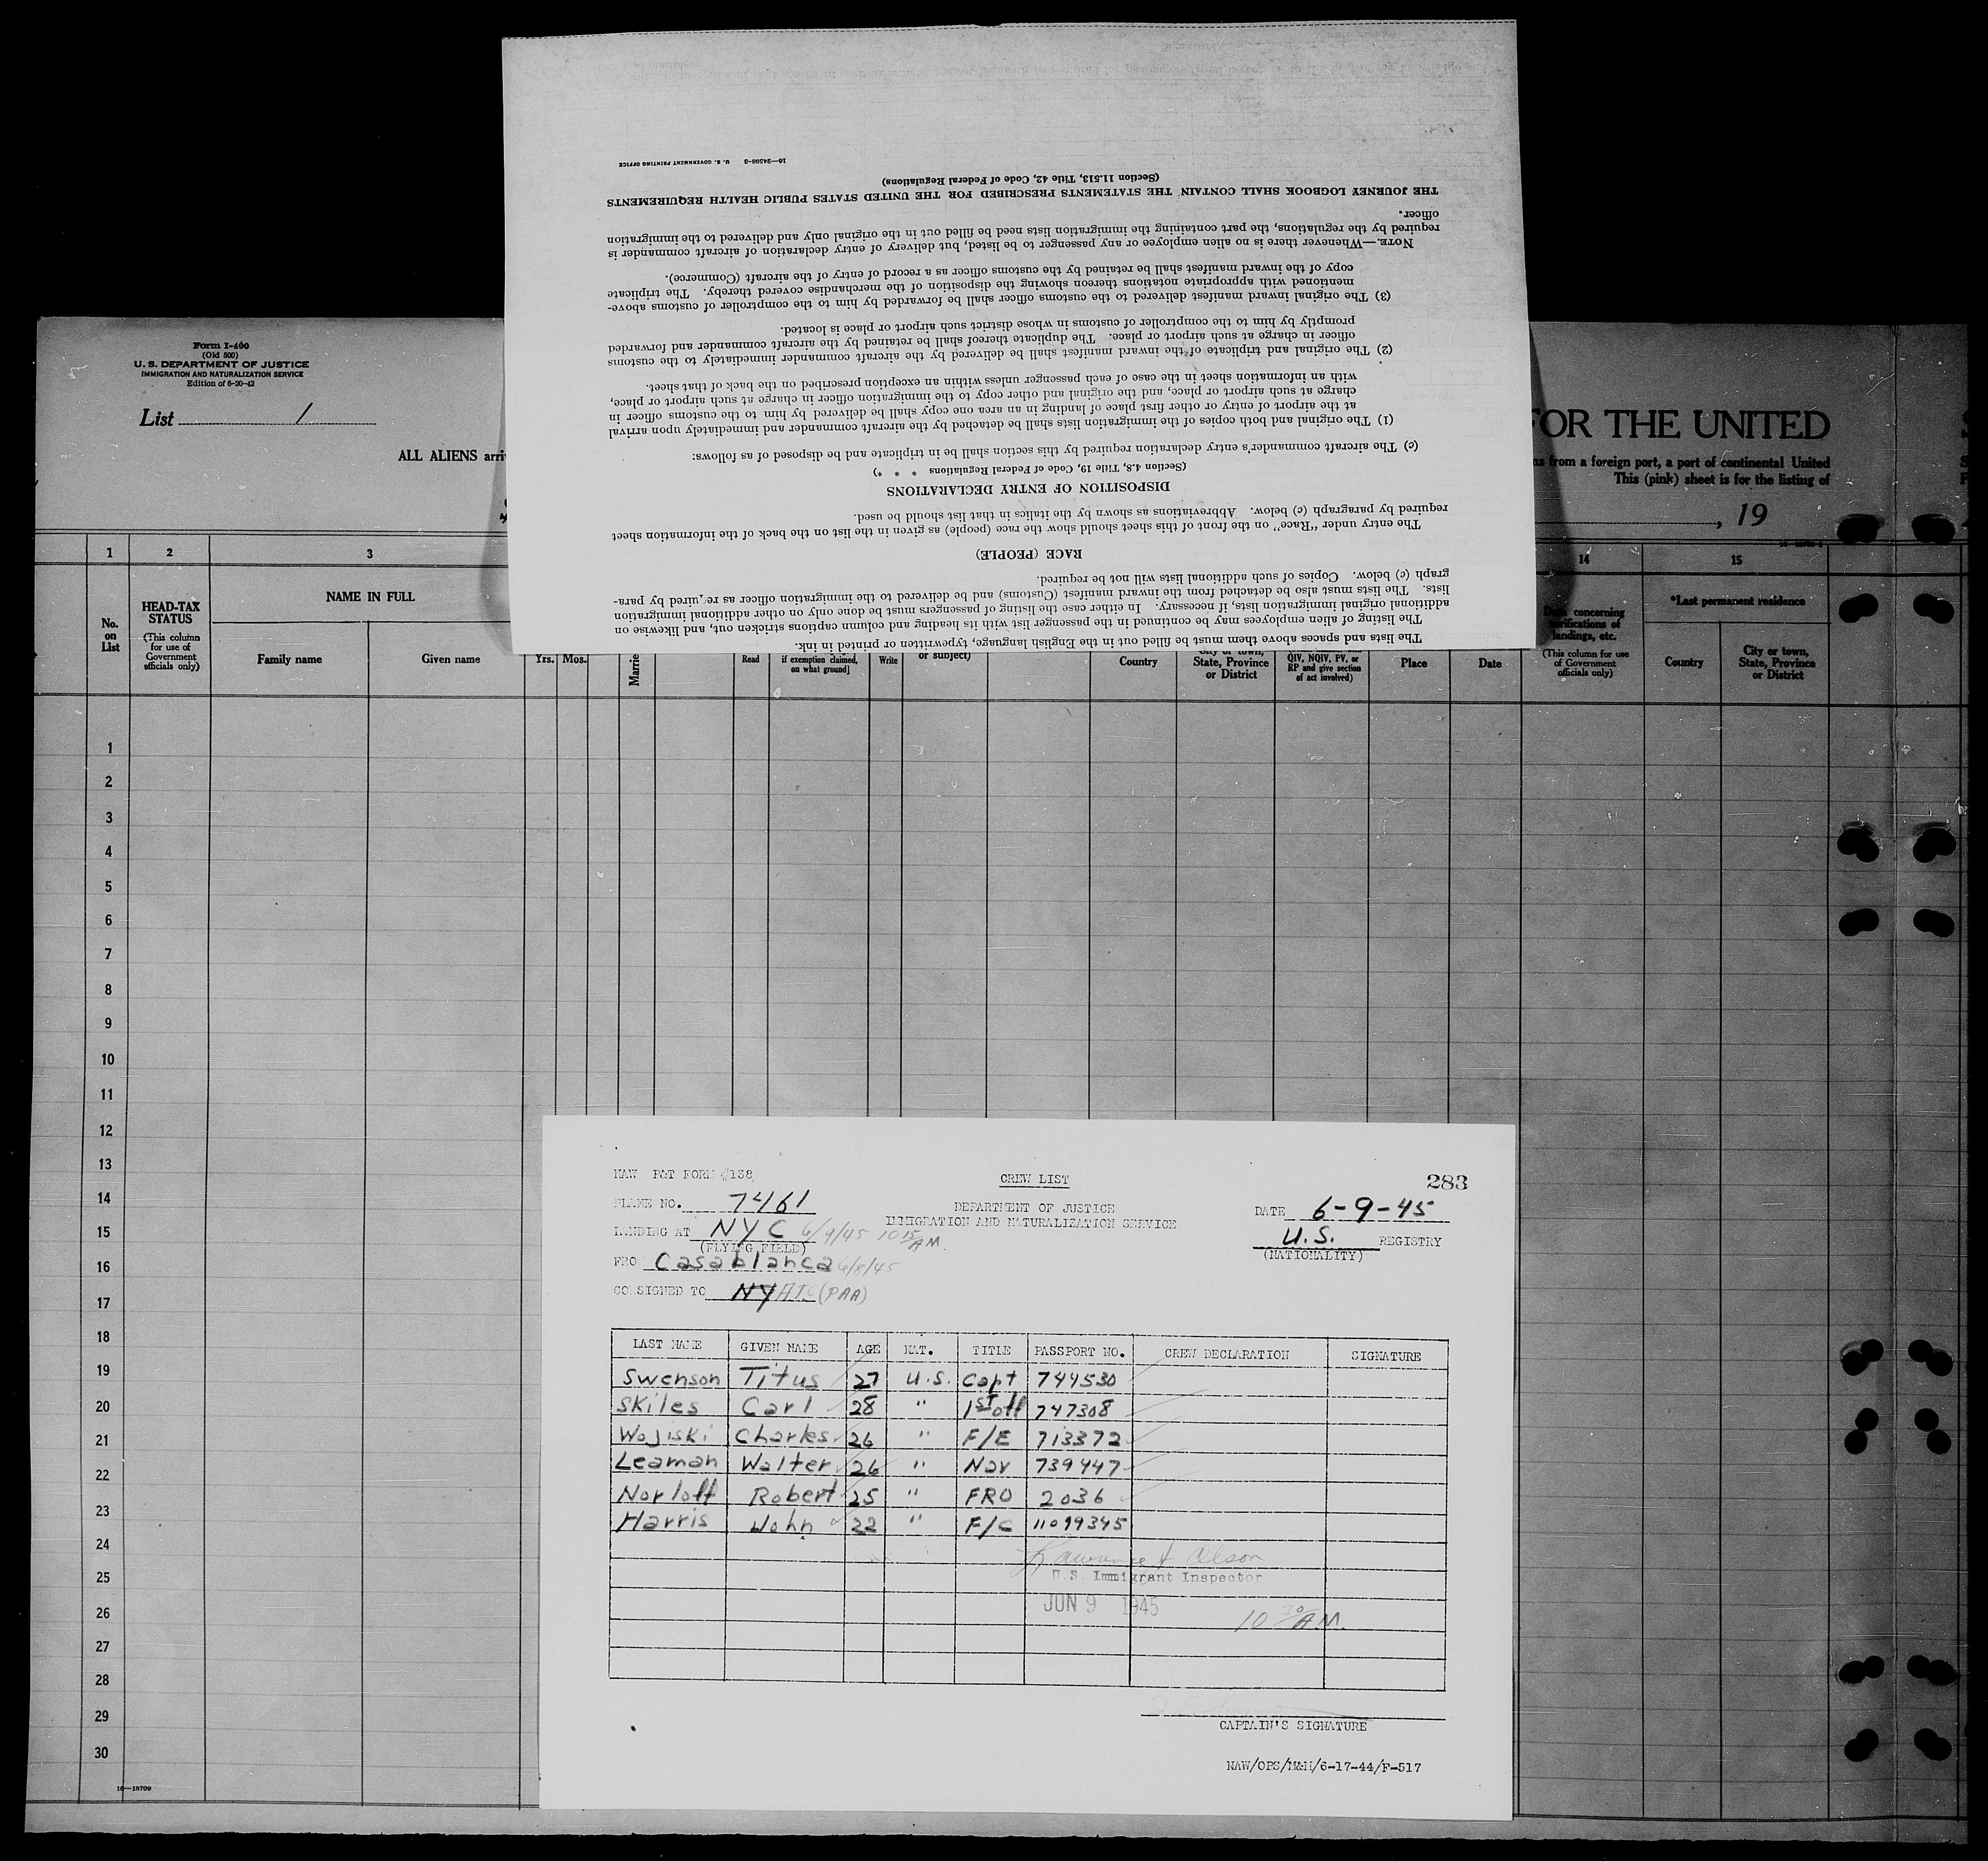 16—24598-3 U. S. GOVERNMENT PRINTING OFFICE
(Section 11.513, Title 42, Code of Federal Regulations)
THE JOURNEY LOGBOOK SHALL CONTAIN THE STATEMENTS PRESCRIBED FOR THE UNITED STATES PUBLIC HEALTH REQUIREMENTS
officer.
required by the regulations, the part containing the immigration lists need be filled out in the original only and delivered to the immigration
NOTE.—Whenever there is no alien employee or any passenger to be listed, but delivery of entry declaration of aircraft commander is
copy of the inward manifest shall be retained by the customs officer as a record of entry of the aircraft (Commerce).
mentioned with appropriate notations thereon showing the disposition of the merchandise covered thereby. The triplicate
(3) The original inward manifest delivered to the customs officer shall be forwarded by him to the comptroller of customs above-
promptly by him to the comptroller of customs in whose district such airport or place is located.
officer in charge at such airport or place. The duplicate thereof shall be retained by the aircraft commander and forwarded
(2) The original and triplicate of the inward manifest shall be delivered by the aircraft commander immediately to the customs
with an information sheet in the case of each passenger unless within an exception prescribed on the back of that sheet.
charge at such airport or place, and the original and other copy to the immigration officer in charge at such airport or place,
at the airport of entry or other first place of landing in an area one copy shall be delivered by him to the customs officer in
(1) The original and both copies of the immigration lists shall be detached by the aircraft commander and immediately upon arrival
(c) The aircraft commander's entry declaration required by this section shall be in triplicate and be disposed of as follows:
(Section 4.8, Title 19, Code of Federal Regulations * * *)
DISPOSITION OF ENTRY DECLARATIONS
required by paragraph (c) below. Abbreviations as shown by the italics in that list should be used.
The entry under "Race" on the front of this sheet should show the race (people) as given in the list on the back of the information sheet
RACE (PEOPLE)
graph (c) below. Copies of such additional lists will not be required.
lists. The lists must also be detached from the inward manifest (Customs) and be delivered to the immigration officer as required by para-
additional original immigration lists, if necessary. In either case the listing of passengers must be done only on other additional immigration
The listing of alien employees may be continued in the passenger list with its heading and column captions stricken out, and likewise on
The lists and spaces above them must be filled out in the English language, typewritten or printed in ink.
Form I-400
(Old 500)
U. S. DEPARTMENT OF JUSTICE
IMMIGRATION AND NATURALIZATION SERVICE
Edition of 6-20-42
List 1
ALL ALIENS arri
FOR THE UNITED
ns from a foreign port, a port of continental United
This (pink) sheet is for the listing of
, 19
1 2 3 14 15
No. on List
HEAD-TAX STATUS
(This column for use of Government officials only)
NAME IN FULL
Family name Given name
Yrs. Mos.
Married
Read
if exemption claimed, on what ground]
Write
or subject)
Country
City or town, State, Province or District
QIV, NQIV, PV, or RP and give section of act involved)
Place Date
concerning verifications of landings, etc.
(This column for use of Government officials only)
*Last permanent residence
Country
City or town, State, Province or District
1
2
3
4
5
6
7
8
9
10
11
12
13
14
15
16
17
18
19
20
21
22
23
24
25
26
27
28
29
30
16—18709
NAW P&T FORM #138
CREW LIST
283
PLANE NO. 7461
DEPARTMENT OF JUSTICE
DATE 6-9-45
LANDING AT NYC 6/9/45 10 15 AM.
IMMIGRATION AND NATURALIZATION SERVICE
U.S. REGISTRY
(FLYING FIELD)
(NATIONALITY)
FROM Casablanca 6/8/45
CONSIGNED TO NY ATC (PAA)
LAST NAME GIVEN NAME AGE NAT. TITLE PASSPORT NO. CREW DECLARATION SIGNATURE
Swenson Titus 27 U.S. Capt 744530
Skiles Carl 28 " 1st off 747308
Wojiski Charles 26 " F/E 713372
Leaman Walter 26 " Nav 739447
Norloff Robert 25 " FRO 2036
Harris John 22 " F/C 11099345
Lawrence A Olson
U.S. Immigrant Inspector
JUN 9 1945
10 30 AM.
CAPTAIN'S SIGNATURE
NAW/OPS/M&H/6-17-44/F-517